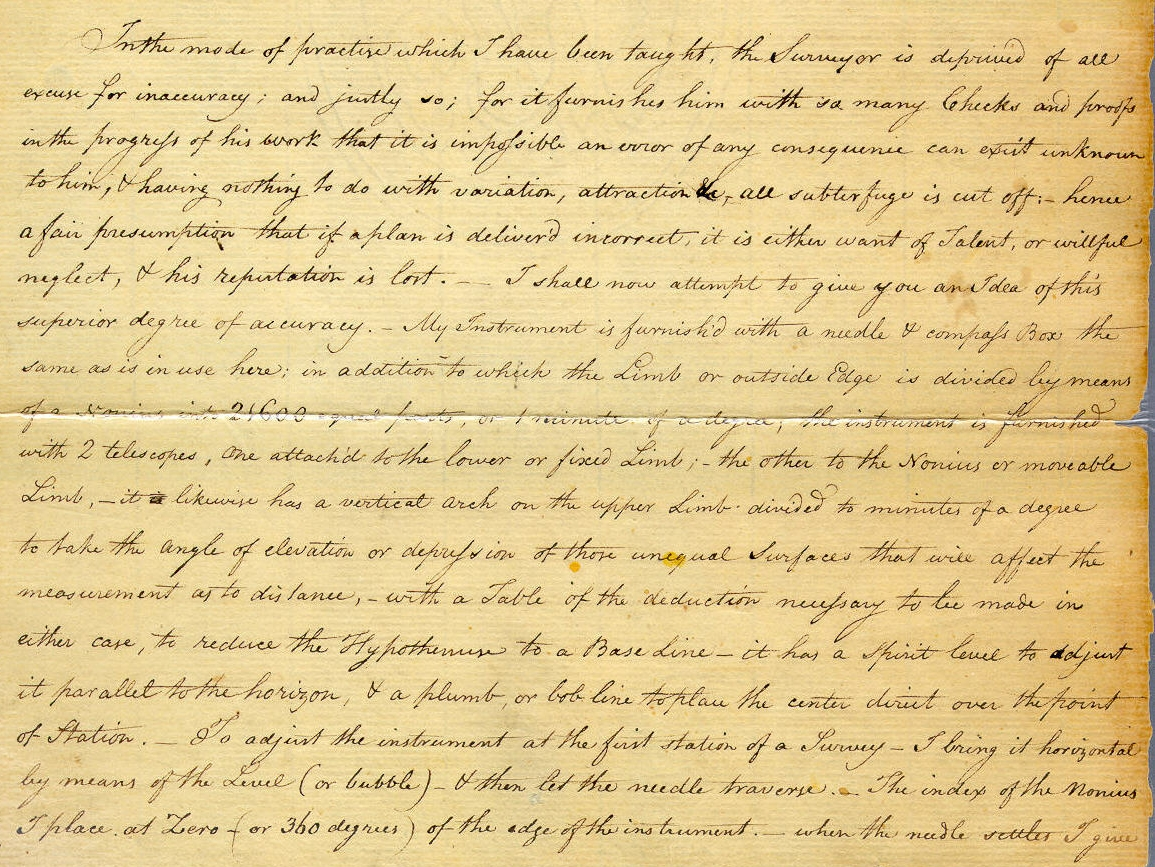 In the mode of practise which I have been taught, the Surveyor is deprived of all
excuse for inaccuracy; and justly so; for it furnishes him with so many Checks and proofs
in the progress of his work that it is impossible an error of any consequence can exist unknown
to him, & having nothing to do with variation, attraction &c, all subterfuge is cut off:- hence
a fair presumption that if a plan is deliver'd incorrect, it is either want of Talent, or willful
neglect, & his reputation is lost. — I shall now attempt to give you an Idea of this
superior degree of accuracy. – My Instrument is furnish'd with a needle & compass Box the
same as is in use here; in addition to which the Limb or outside Edge is divided by means
of a Nonius into 21600 equal parts, or 1 minute of a degree; the instrument is furnished
with 2 telescopes, One attach'd to the lower or fixed Limb; - the other to the Nonius or moveable
Limb, – it likewise has a vertical arch on the upper Limb divided to minutes of a degree
to take the angle of elevation or depression of those unequal Surfaces that will affect the
measurement as to distance, – with a Table of the deduction necessary to be made in
either case, to reduce the Hypothenuse to a Base Line – it has a Spirit level to adjust
it parallel to the horizon, & a plumb, or bob line to place the center direct over the point
of Station. — To adjust the instrument at the first station of a Survey – I bring it horizontal
by means of the Level (or bubble) – & then let the needle traverse. — The index of the Nonius
I place at Zero – (or 360 degrees) of the edge of the instrument. — when the needle settles I give